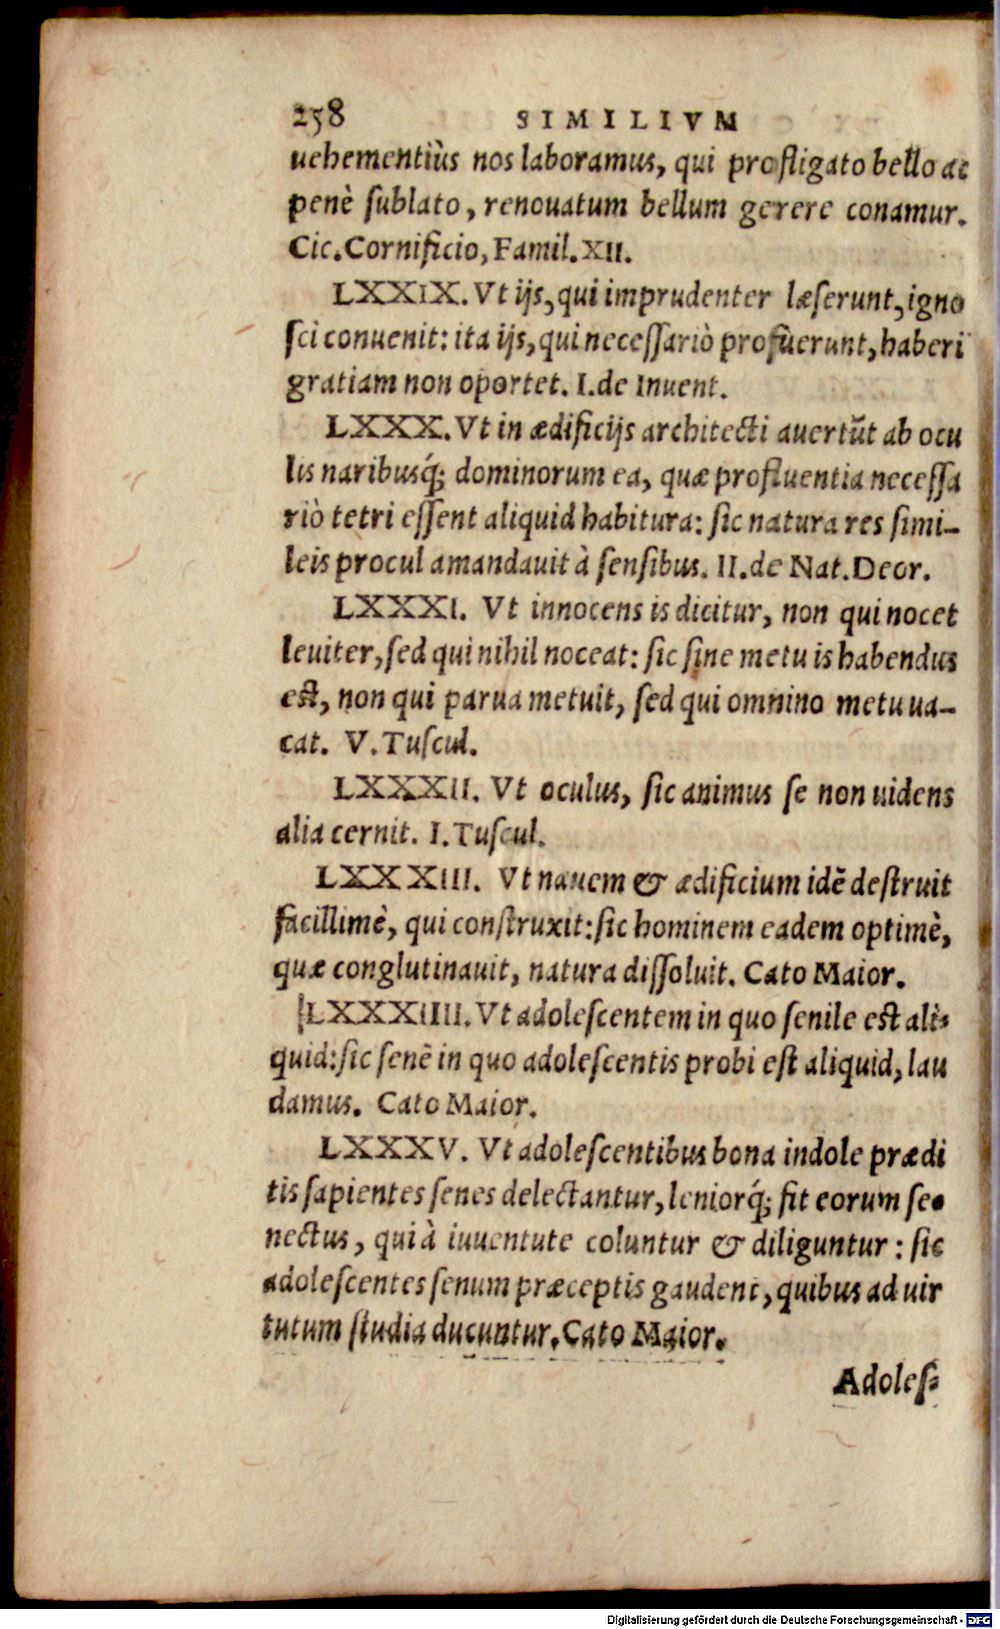 258 SIMILIVM
uehementiùs nos laboramus, qui profligato bello ac
penè ſublato, renouatum bellum gerere conamur.
Cic. Cornificio, Famil. XII.
LXXIX. Vt ijs, qui imprudenter læſerunt, igno
ſci conuenit: ita ijs, qui neceſſariò profuerunt, haberi
gratiam non oportet. I. de Inuent.
LXXX. Vt in ædificijs architecti auertūt ab ocu
lis naribusq́; dominorum ea, quæ profluentia neceſſa
riò tetri eſſent aliquid habitura: ſic natura res ſimi-
leis procul amandauit à ſenſibus. II. de Nat. Deor.
LXXXI. Vt innocens is dicitur, non qui nocet
leuiter, ſed qui nihil noceat: ſic ſine metu is habendus
eſt, non qui parua metuit, ſed qui omnino metu ua-
cat. V. Tuſcul.
LXXXII. Vt oculus, ſic animus ſe non uidens
alia cernit. I. Tuſcul.
LXXXIII. Vt nauem & ædificium idē deſtruit
facillimè, qui conſtruxit: ſic hominem eadem optimè,
quæ conglutinauit, natura diſſoluit. Cato Maior.
LXXXIIII. Vt adoleſcentem in quo ſenile eſt ali-
quid: ſic ſenē in quo adoleſcentis probi eſt aliquid, lau
damus. Cato Maior.
LXXXV. Vt adoleſcentibus bona indole prædi
tis ſapientes ſenes delectantur, leniorq́; fit eorum ſe-
nectus, qui à iuuentute coluntur & diliguntur: ſic
adoleſcentes ſenum præceptis gaudent, quibus ad uir
tutum ſtudia ducuntur. Cato Maior.
Adoleſ-
Digitalisierung gefördert durch die Deutsche Forschungsgemeinschaft - DFG